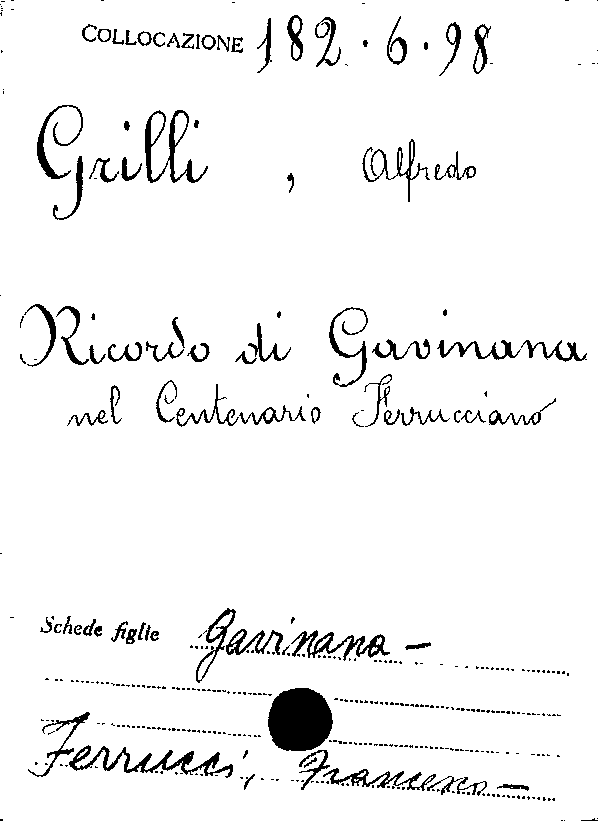 COLLOCAZIONE 182.6.98
Grilli, Alfredo
Ricordo di Gavinana
nel Centenario Ferrucciano
Schede figlie Gavinana -
Ferrucci, Francesco -